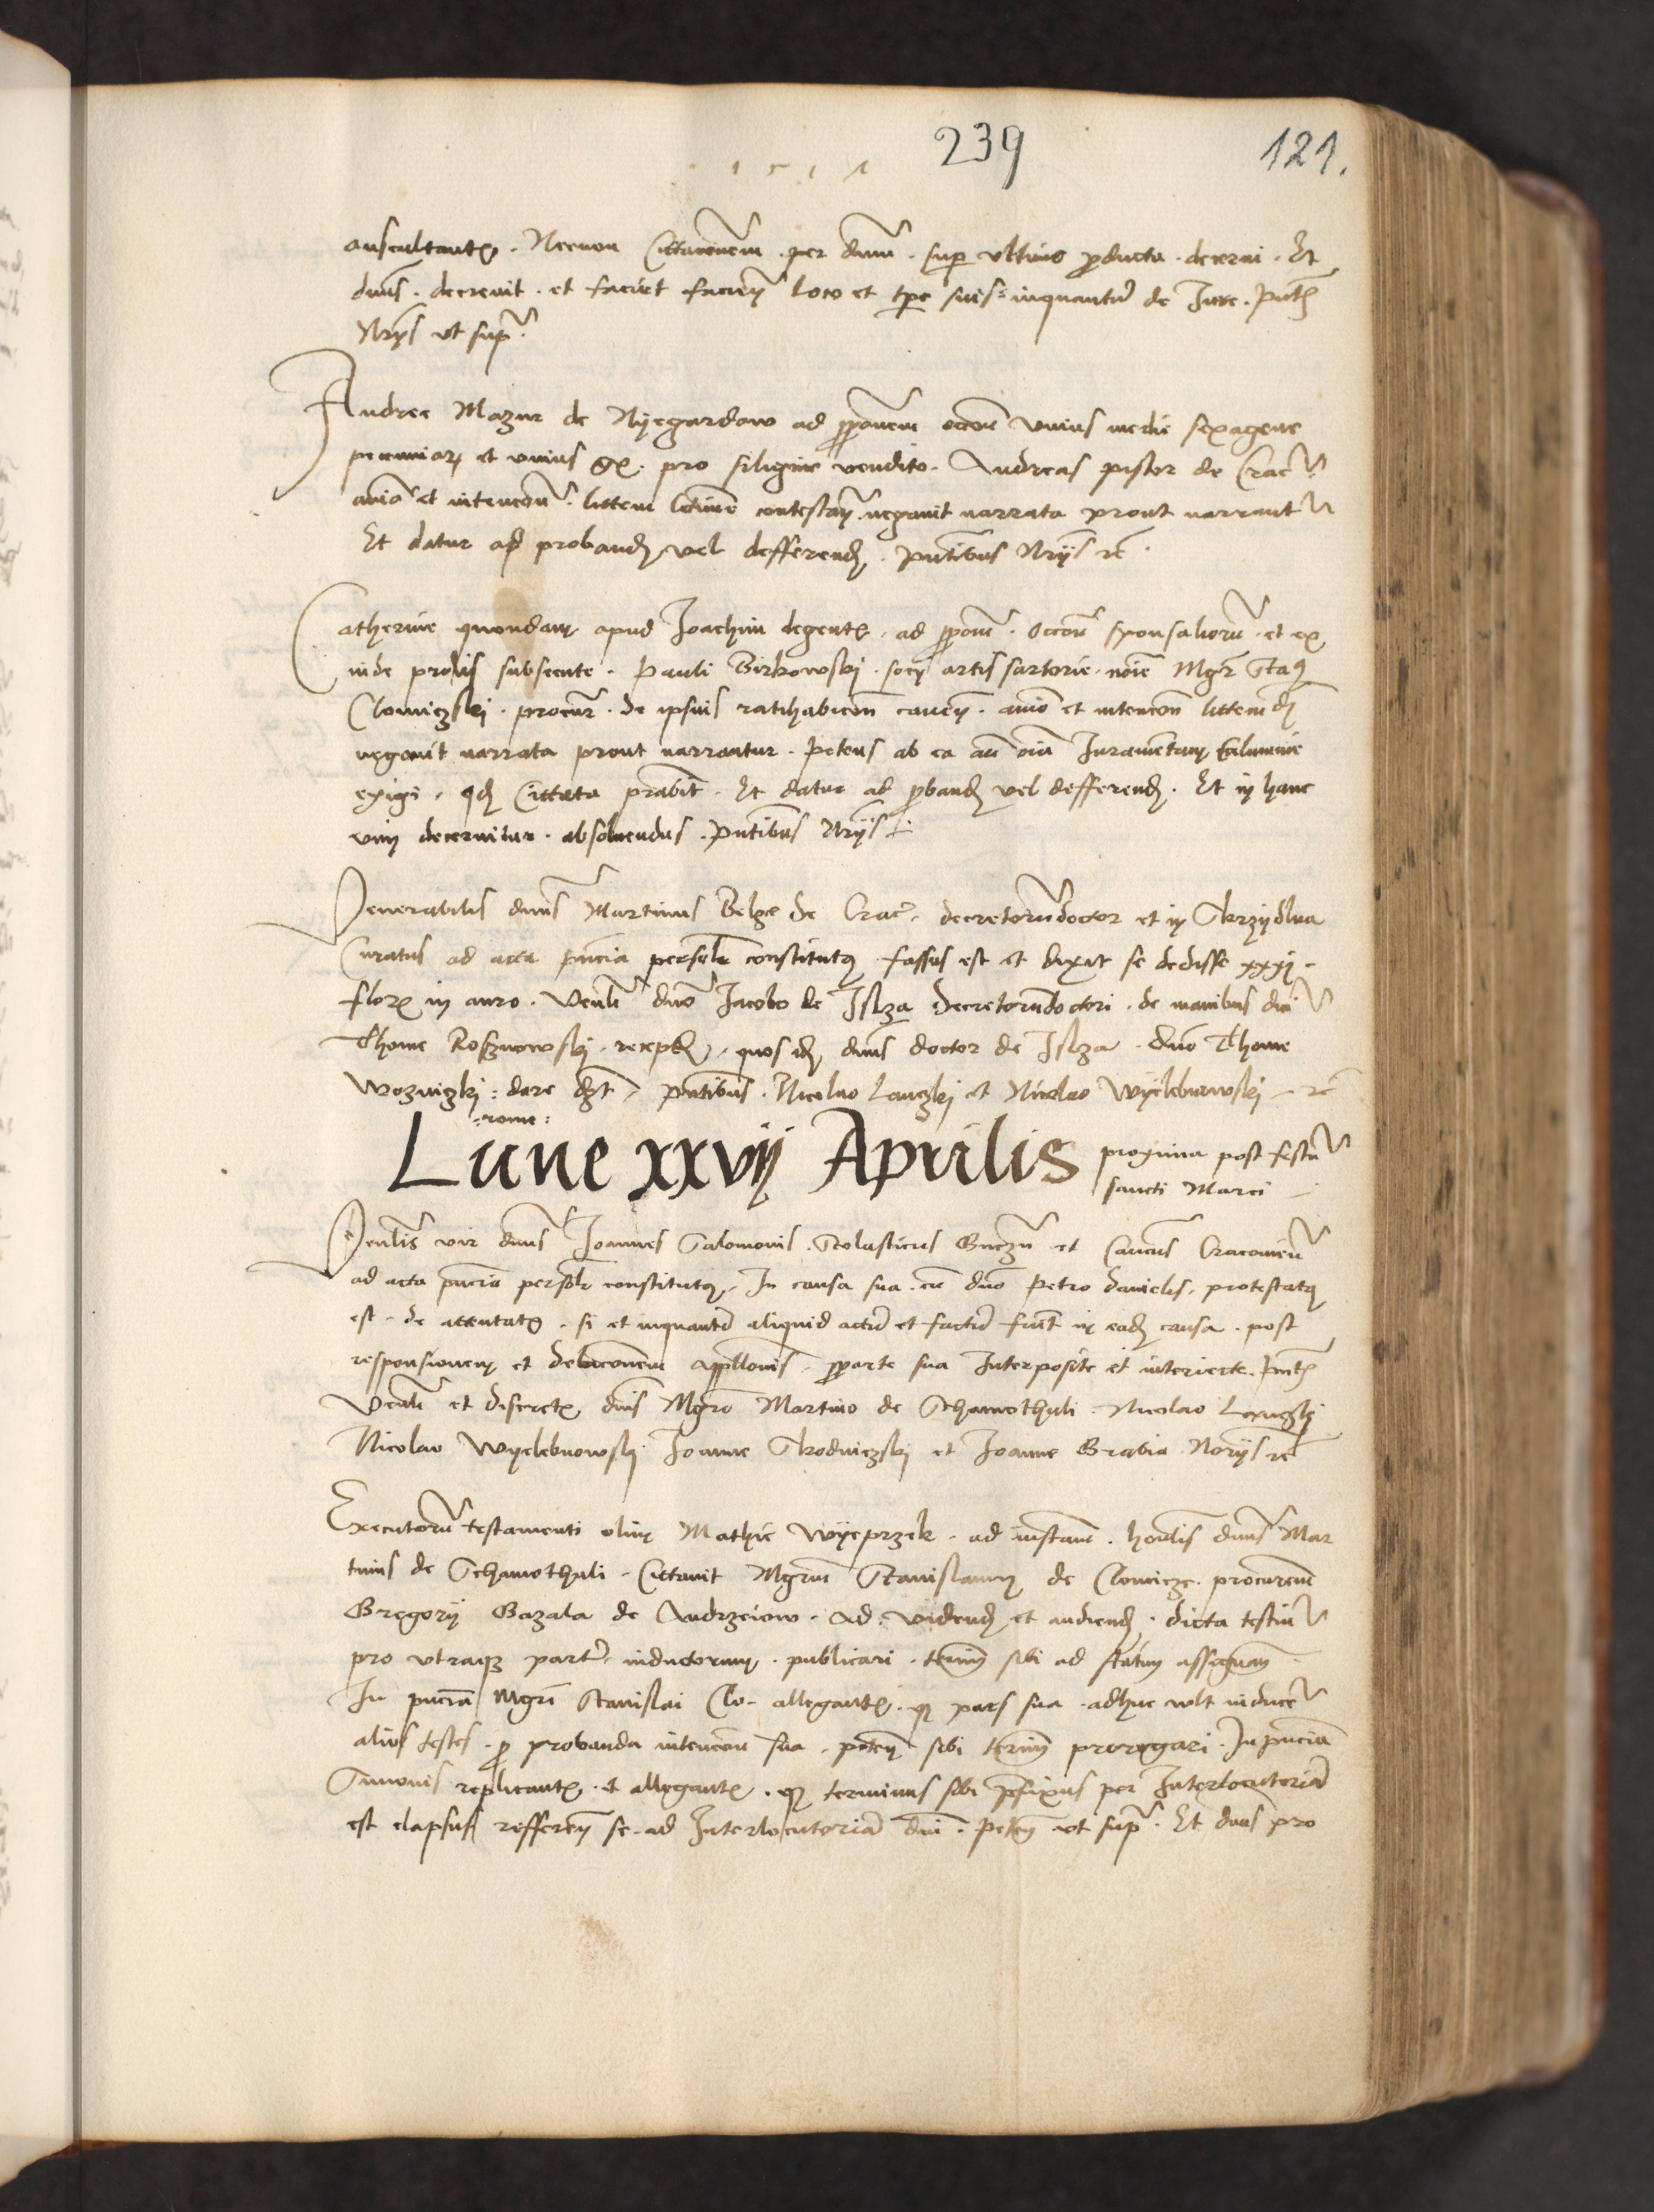 239
121.
1511
auscultantes. Necnon Cittacionem per dnum. super ultimo producta. decerni. Et
dnus. decrevit. et faciet faciend loco et tpe suis inquantum de Iure. Pntibus
Nrijs ut supra
Andree Mazur de Nyegardow ad proponem occone unius medie sexagene
pecuniarum et unius gr. pro siligine vendito. Andreas pistor de Crac
animo et intencone littem contestan negavit narrata prout narrant
Et datur ad proband vel defferend. Pntibus Nrijs rc
Catherine quondam apud Joachim degentis. ad propom. occone sponsaliorum et ex
inde prolis subsecute. Pauli Birkowski. socij artis sartorie. noie Mgr Stas
Clomiczski. procur. de ipsius ratihabicone caven. animo et intencone littem
negavit narrata prout narrantur. Petens ab ea an oia Juramentum Calumnie
exigi. Cittata Et datur ad proband vel defferend. Et in hanc
vim decernitur. absolvendus. Pntibus Nrijs
Venerabilis dnus Martinus Belze de Crac. decretorum doctor et in Skrzydlna
Curatus ad acta pncia personaliter constitutus fassus est et dixit se dedisse xxxj
flor in auro. Venli dno Jacobo de Islza decretorum doctori. de manibus dni
Thome Rosznowski. recept. quos dnus doctor de Islza. dno Thome
Wozniczki: dare Pntibus. Nicolao Lanczki et Nicolao Wyelebnowski rc
=rome:
Lune xxvij Aprilis proxima post festum
sancti Marci
Venlis vir dnus Joannes Salomonis. Scolasticus Gnezn et Cancus Cracovien
ad acta pncia personaliter constitutus. In causa sua. cu dno Petro Danielis. protestatus
est. de attentatis. si et inquantum aliquid actum et factum in eadem causa. post
responsionem et appellonis. pro parte sua Interposite et interiecte. Pntibus
Venli et discretis dnis Mgro Martino de Schamothuli. Nicolao Lanczki
Nicolao Wyelebnowski Joanne Skodniczski et Joanne Grabia Norijs rc
Executorum testamenti olim Mathie Wyeprzek. ad instanc. honlis dnus Mar
tinus de Schamothuli. Cittavit Mgrum Stanislaum de Clomicze. procurem
Gregorij Gazala de Andrzeiow. ad. vidend et audiend. dicta testium
pro utraque parte inductorum. publicari. terminum sibi ad statim assignan
In pncia Mgri Stanislai Clo. allegantis. quod pars sua. adhuc vult inducere
alios testes. pro probanda intencone sua. peten sibi terminum prorogari. In pncia
Simonis replicantis. et allegantis. quod terminus sibi prefixus per Interlocutoriam
est elapsus refferen se ad Interlocutoriam dni. Peten ut supra. Et dnus pro